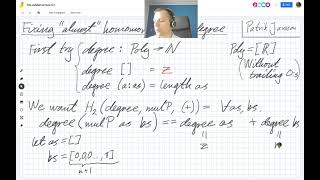 Fixing "almost" homomorphism degree Patrik Jansson
First try { degree : Poly → ℕ Poly = [ℝ]
degree [] = z (Without
degree (a:as) = length as trailing 0:s)
We want H₂(degree, mulP, (+)) = ∀as, bs.
degree (mulP as bs) == degree as + degree bs
let as = [] " "
bs = [0,0,0...,1] z
n+1